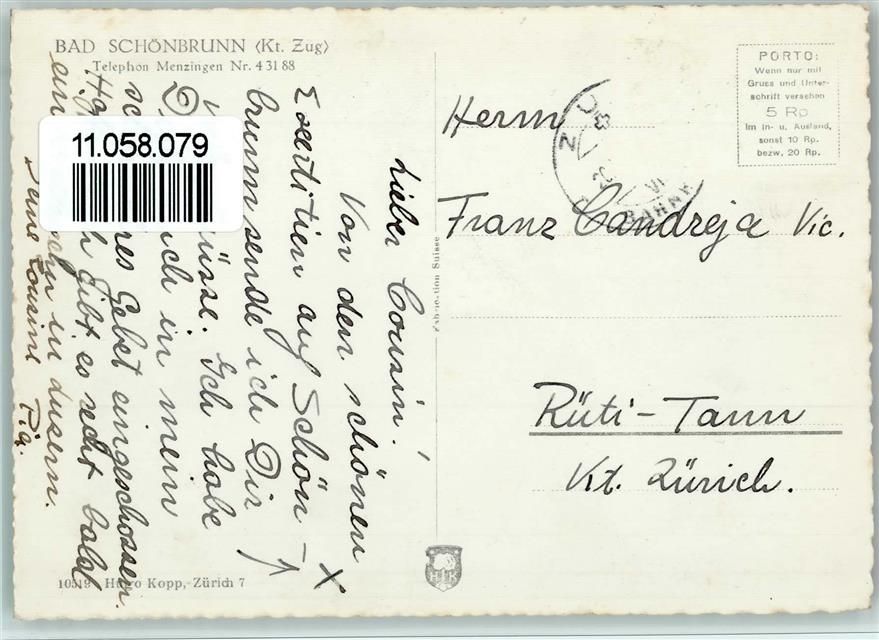 BAD SCHÖNBRUNN (Kt. Zug)
Telephon Menzingen Nr. 4 31 88
11.058.079
PORTO:
Wenn nur mit
Gruss und Unter-
schrift versehen
5 Rp
Im In- u. Ausland,
sonst 10 Rp.
bezw. 20 Rp.
Herrn
Franz Candreja Vic.
Rüti-Tann
Kt. Zürich.
Lieber Cousin!
Von den schönen
Exerzitien auf Schön-
brunn sende ich Dir
Grüsse. Ich habe
ich in mein
Gebet eingeschossen.
gibt es recht bald
ein in Luzern.
Deine Cousine Pia.
Suisse
10519 Hugo Kopp, Zürich 7
HK